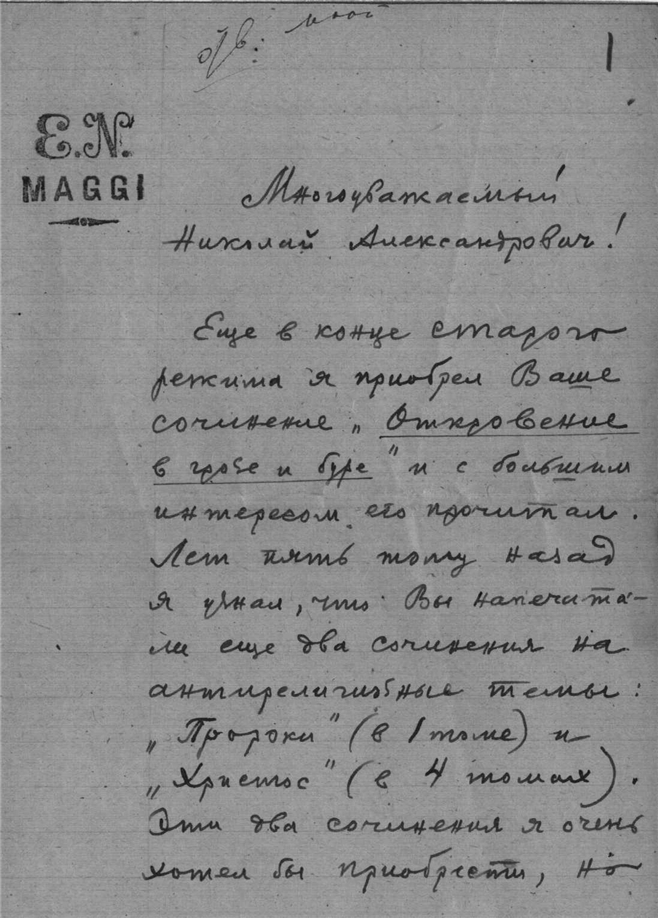 1
E.N.
MAGGI
Многоуважаемый
Николай Александрович!
Еще в конце старого
режима я приобрел Ваше
сочинение „Откровение
в грозе и буре" и с большим
интересом его прочитал.
Лет пять тому назад
я узнал, что Вы напечата-
ли еще два сочинения на
антирелигиозные темы:
„Пророки" (в 1 томе) и
„Христос" (в 4 томах).
Эти два сочинения я очень
хотел бы приобрести, но